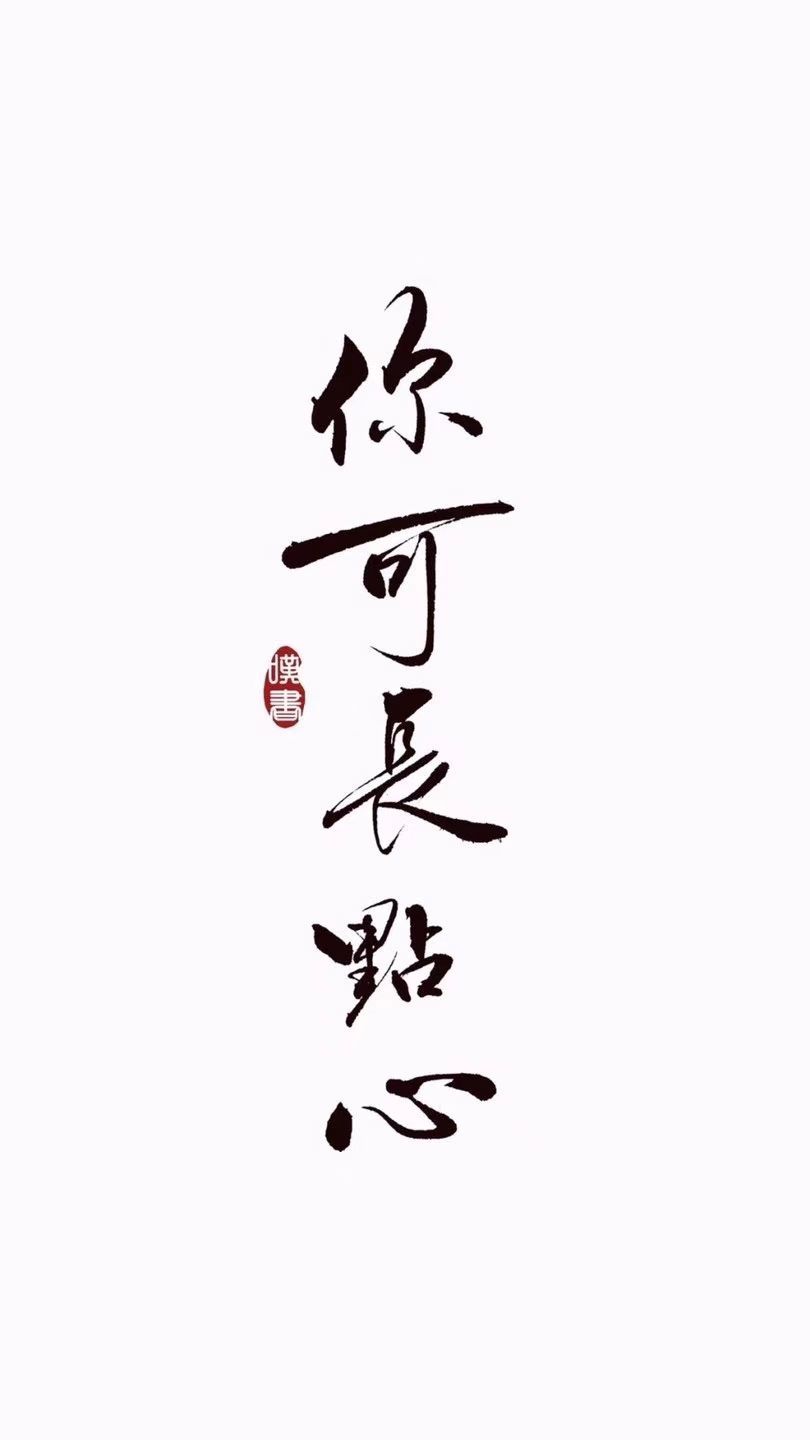 你可長點心
嘆書